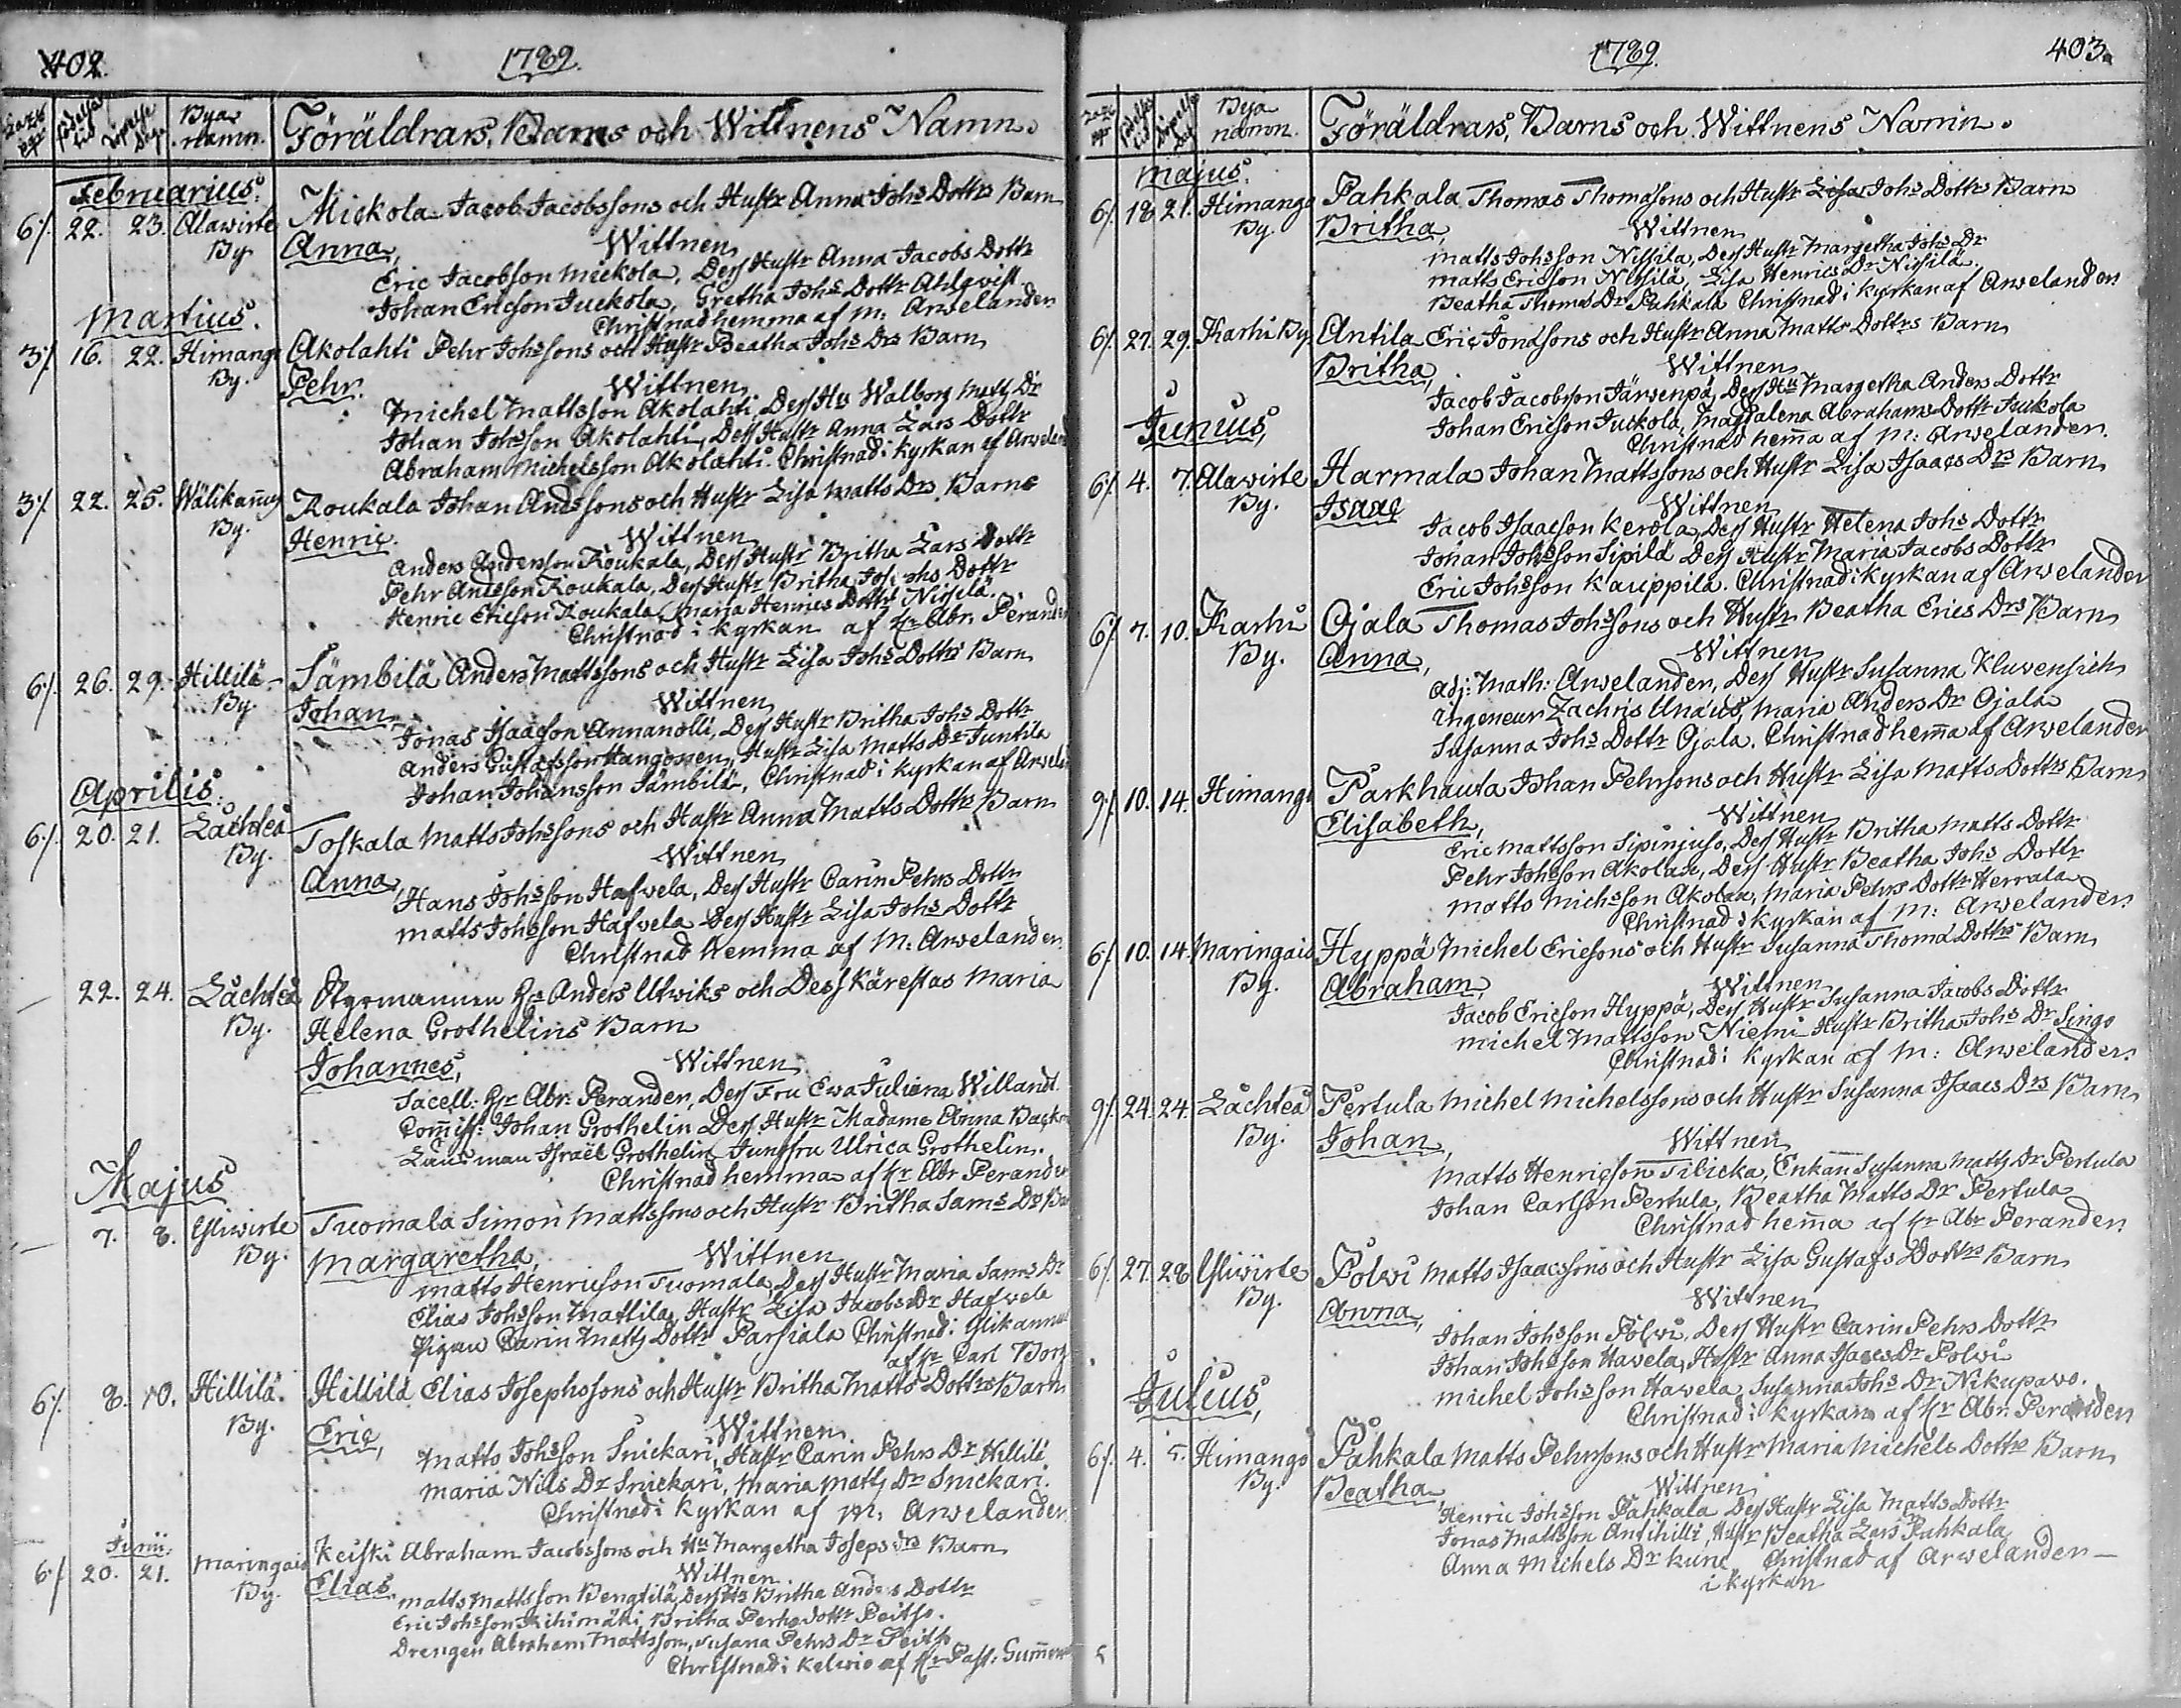 402.
1789.
Födelse tid
Döpelse dag
Bya namn.
Föräldrars, Barns och Wittnens Namn.
Februarius.
6/. 22. 23. Alawirte Mickola Jacob Jacobssons och Hustr Anna Johs Dottrs Barn
By Anna, Wittnen
Eric Jacobsson Mickola, Dess Hustr Anna Jacobs Dottr
Johan Ericsson Juckola, Gretha Johs Dottr Ahlqvist
Christnad hemma af M: Arwelander.
Martius.
3/. 16. 22. Himango Akolahti Pehr Johssons och Hustr Beatha Johs Drs Barn
By. Pehr. Wittnen
Michel Mattsson Akolahti, Dess Hu Walborg Matts Dr
Johan Johsson Akolahti, Dess Hustr Anna Lars Dottr
Abraham Michelsson Akolahti. Christnad i kyrkan af Arweland
3/. 22. 25. Wälikannus Roukala Johan Andssons och Hustr Lisa Matts Drs Barns
By. Henric. Wittnen
Anders Andersson Roukala, Dess Hustr Britha Lars Dottr
Pehr Andsson Roukala, Dess Hustr Britha Johs Dottr
Henric Ericsson Roukala, Maria Henrics Dottr Nissilä.
Christnad i kyrkan af Hr Abr. Perander
6/. 26. 29. Hillilä Sämbilä Anders Mattssons och Hustr Lisa Johs Dottrs Barn
By. Johan, Wittnen
Jonas Isaacson Annanolli, Dess Hustr Britha Johs Dottr
Anders Gustafsson Hangossen, Hustr Lisa Matts Dr Juntila
Johan Johansson Sämbilä, Christnad i kyrkan af Arwela
Aprilis.
6/. 20. 21. Lachteå Toskala Matts Johssons och Hustr Anna Matts Dottrs Barn
By. Anna, Wittnen
Hans Johsson Hafwela, Dess Hustr Carin Pehrs Dottr
Matts Johsson Hafwela Dess Hustr Lisa Johs Dottr
Christnad hemma af M: Arwelander.
22. 24. Lachteå Styrmannen Hr Anders Utwiks och Dess Kärestas Maria
By. Helena Grothelins Barn
Johannes, Wittnen
Sacell: Hr Abr: Perander, Dess Fru Ewa Juliana Willandt
Commiss: Johan Grothelin Dess Hustr Madame Anna Back
Länsman Israël Grothelin Jungfru Ulrica Grothelin.
Christnad hemma af Hr Abr Perander
Majus
7. 8. Yliwirte Tuomala Simon Mattssons och Hustr Britha Sams Dr Bar
By. Margaretha, Wittnen
Matts Henricson Tuomala, Dess Hustr Maria Sams Dr
Elias Johsson Mattila, Hustr Lisa Jacobs Dr Hafwela
Pigan Carin Matts Dottr Parsiala Christnad i Ylikannus
af Hr Carl Borg
6/. 8. 10. Hillilä. Hillilä Elias Josephssons och Hustr Britha Matts Dottrs Barn
By. Eric, Wittnen
Matts Johsson Snickari, Hustr Carin Pehrs Dr Hillilä
Maria Nils Dr Snickari, Maria Matts Dr Snickari.
Christnad i kyrkan af M: Arwelander
Junii.
6/. 20. 21. Maringais Keiski Abraham Jacobssons och Hu Margetha Joseps Drs Barn
By. Elias. Wittnen.
Matts Mattsson Bengtilä, Dess Hu Britha Anders Dottr
Eric Johsson Rihimäki, Britha Perhs dottr Peitso.
Drengen Abraham Mattsson, Susana Pehrs Dr Peitso
Christnad i Kelwio af Hr Past: Gummerus
1789.
403.
Bya namn.
Föräldrars, Barns och Wittnens Namn.
Majus.
6/. 18 21. Himango Pahkala Thomas Thomassons och Hustr Lisa Johs Dottrs Barn
By. Britha, Wittnen
Matts Johsson Nissilä, Dess Hustr Margetha Johs Dr
Matts Ericsson Nissilä, Lisa Henrics Dr Nissilä
Beatha Thoms Dr Pahkala Christnad i kyrkan af Arwelander
6/. 27. 29. Karhi By. Antila Eric Jonssons och Hustr Anna Matts Dottrs Barn
Britha, Wittnen
Jacob Jacobsson Järwenpä, Dess Hu Margetha Anders Dottr
Johan Ericson Juckola, Magdalena Abrahams Dottr Juckola
Christnad hemma af M: Arwelander.
Junius,
6/. 4. 7. Alawirte Harmala Johan Mattssons och Hustr Lisa Isaacs Drs Barn
By. Isaac Wittnen
Jacob Isaacson Kerola, Dess Hustr Helena Johs Dottr
Johan Johsson Sipilä Dess Hustr Maria Jacobs Dottr
Eric Johsson Kauppila. Christnad i kyrkan af Arwelander
6/. 7. 10. Karhi Ojala Thomas Johssons och Hustr Beatha Erics Drs Barn
By. Anna, Wittnen
Adj: Math: Arwelander, Dess Hustr Susanna Kluwensich
Ingeneur Zachris Unæus, Maria Anders Dr Ojala
Susanna Johs Dottr Ojala. Christnad hemma af Arwelander
9/. 10. 14. Himango Parkhauta Johan Pehrsons och Hustr Lisa Matts Dottrs Barn
Elisabeth, Wittnen
Eric Mattsson Sipinjuso, Dess Hustr Britha Matts Dottr
Pehr Johsson Akolax, Dess Hustr Beatha Johs Dottr
Matts Michsson Akolax, Maria Pehrs Dottr Herrala
Christnad i kyrkan af M: Arwelander
6/. 10. 14. Maringais Hyppä Michel Ericsons och Hustr Susanna Thoma Dottrs Barn
By. Abraham, Wittnen
Jacob Ericson Hyppä, Dess Hustr Susanna Jacobs Dottr
Michel Mattsson Niemi Hustr Britha Johs Dr Singo
Christnad i kyrkan af M: Arwelander.
9/. 24. 24. Lachteå Pertula Michel Michelssons och Hustr Susanna Isaacs Drs Barn
By. Johan, Wittnen
Matts Henricson Tilicka, Enkan Susanna Matts Dr Pertula
Johan Carlsson Pertula, Beatha Matts Dr Pertula
Christnad hemma af Hr Abr Perander
6/. 27. 28 Yliwirte Polwi Matts Isaacssons och Hustr Lisa Gustafs Dottrs Barn
By. Anna, Wittnen
Johan Johsson Polwi, Dess Hustr Carin Pehrs Dottr
Johan Johsson Hawela, Hustr Anna Isaacs Dr Polwi
Michel Johsson Hawela, Susanna Johs Dr Nikupawo.
Christnad i kyrkan af Hr Abr. Perander
Julius,
6/. 4. 5. Himango Pahkala Matts Pehrssons och Hustr Maria Michels Dottrs Barn
By. Beatha, Wittnen
Henric Johsson Pahkala Dess Hustr Lisa Matts Dottr
Jonas Mattsson Antihilli, Hustr Beatha Lars Pahkala
Anna Michels Dr Kune Christnad af Arwelander
i kyrkan